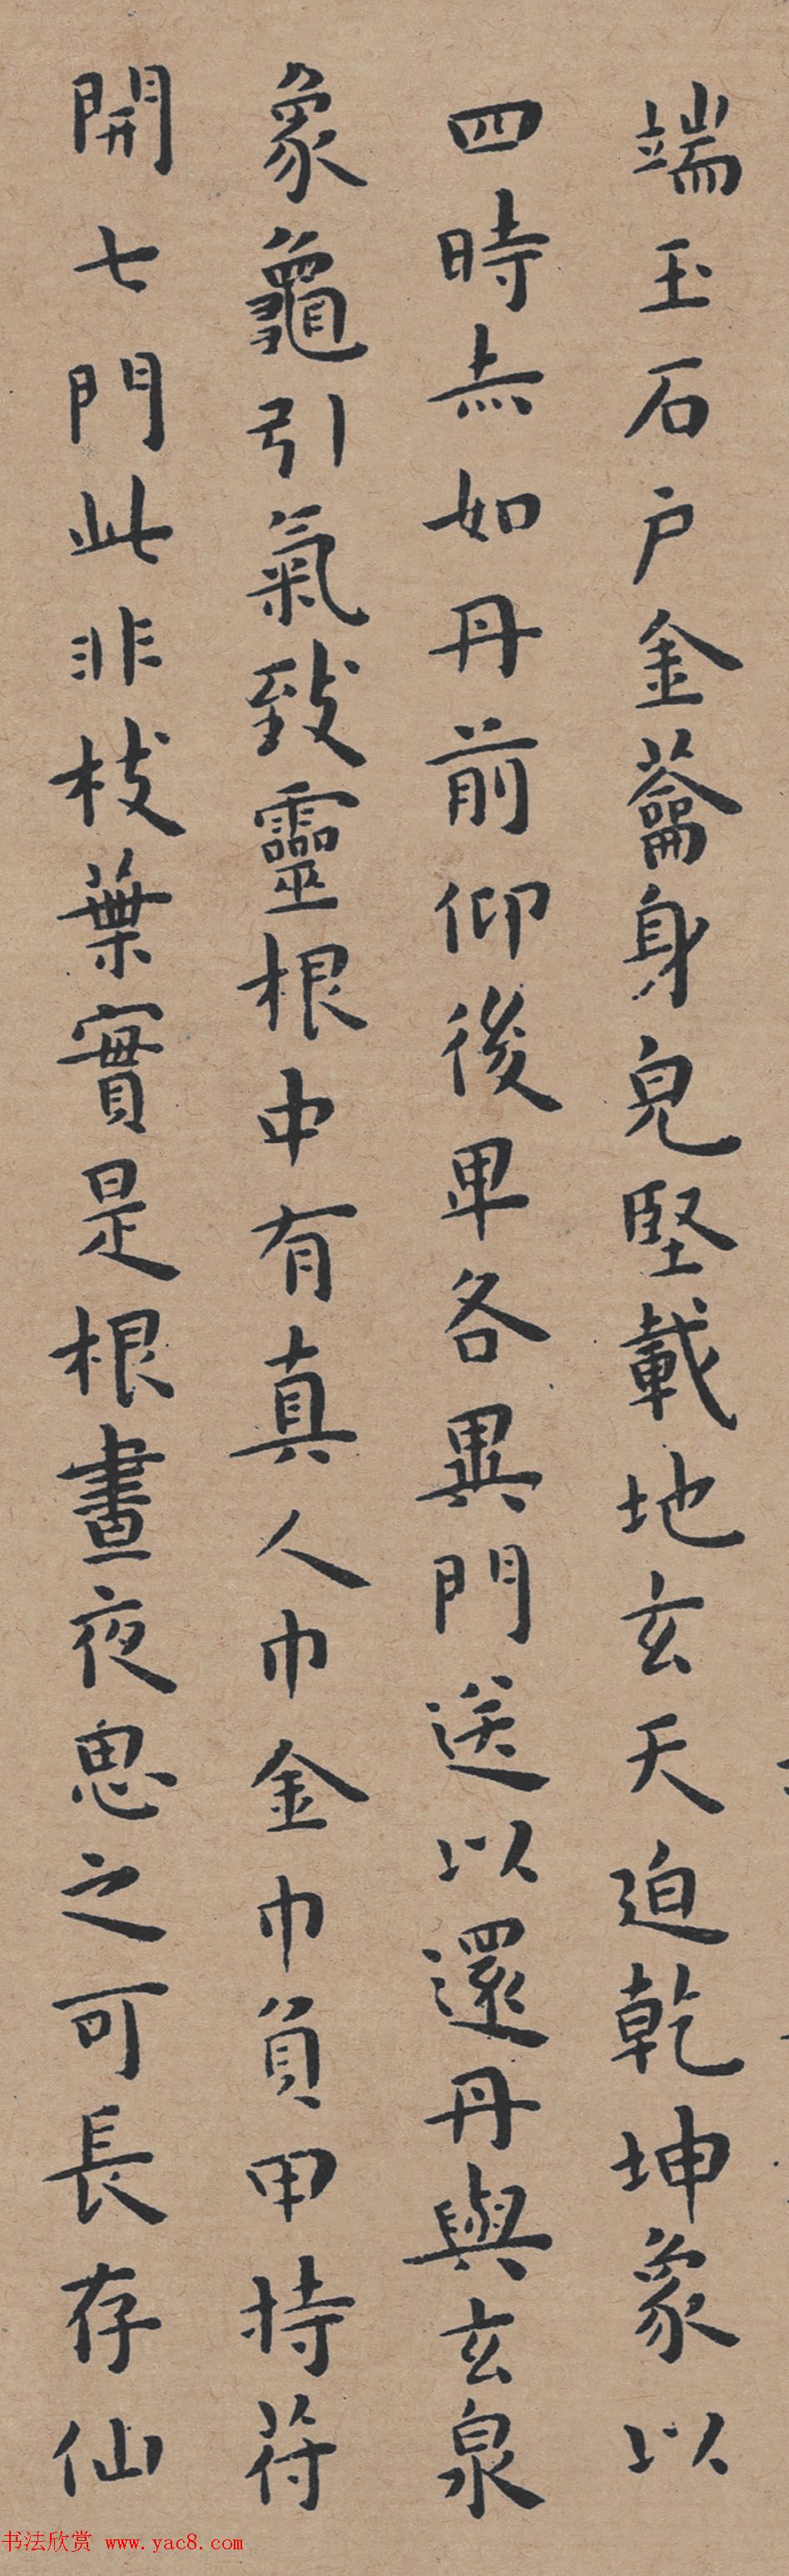 端玉石戶金籥身皃堅載地玄天迫乾坤象以
四時赤如丹前仰後卑各異門送以還丹與玄泉
象龜引氣致靈根中有真人巾金巾負甲持苻
開七門此非枝葉實是根晝夜思之可長存仙
书法欣赏 www.yac8.com